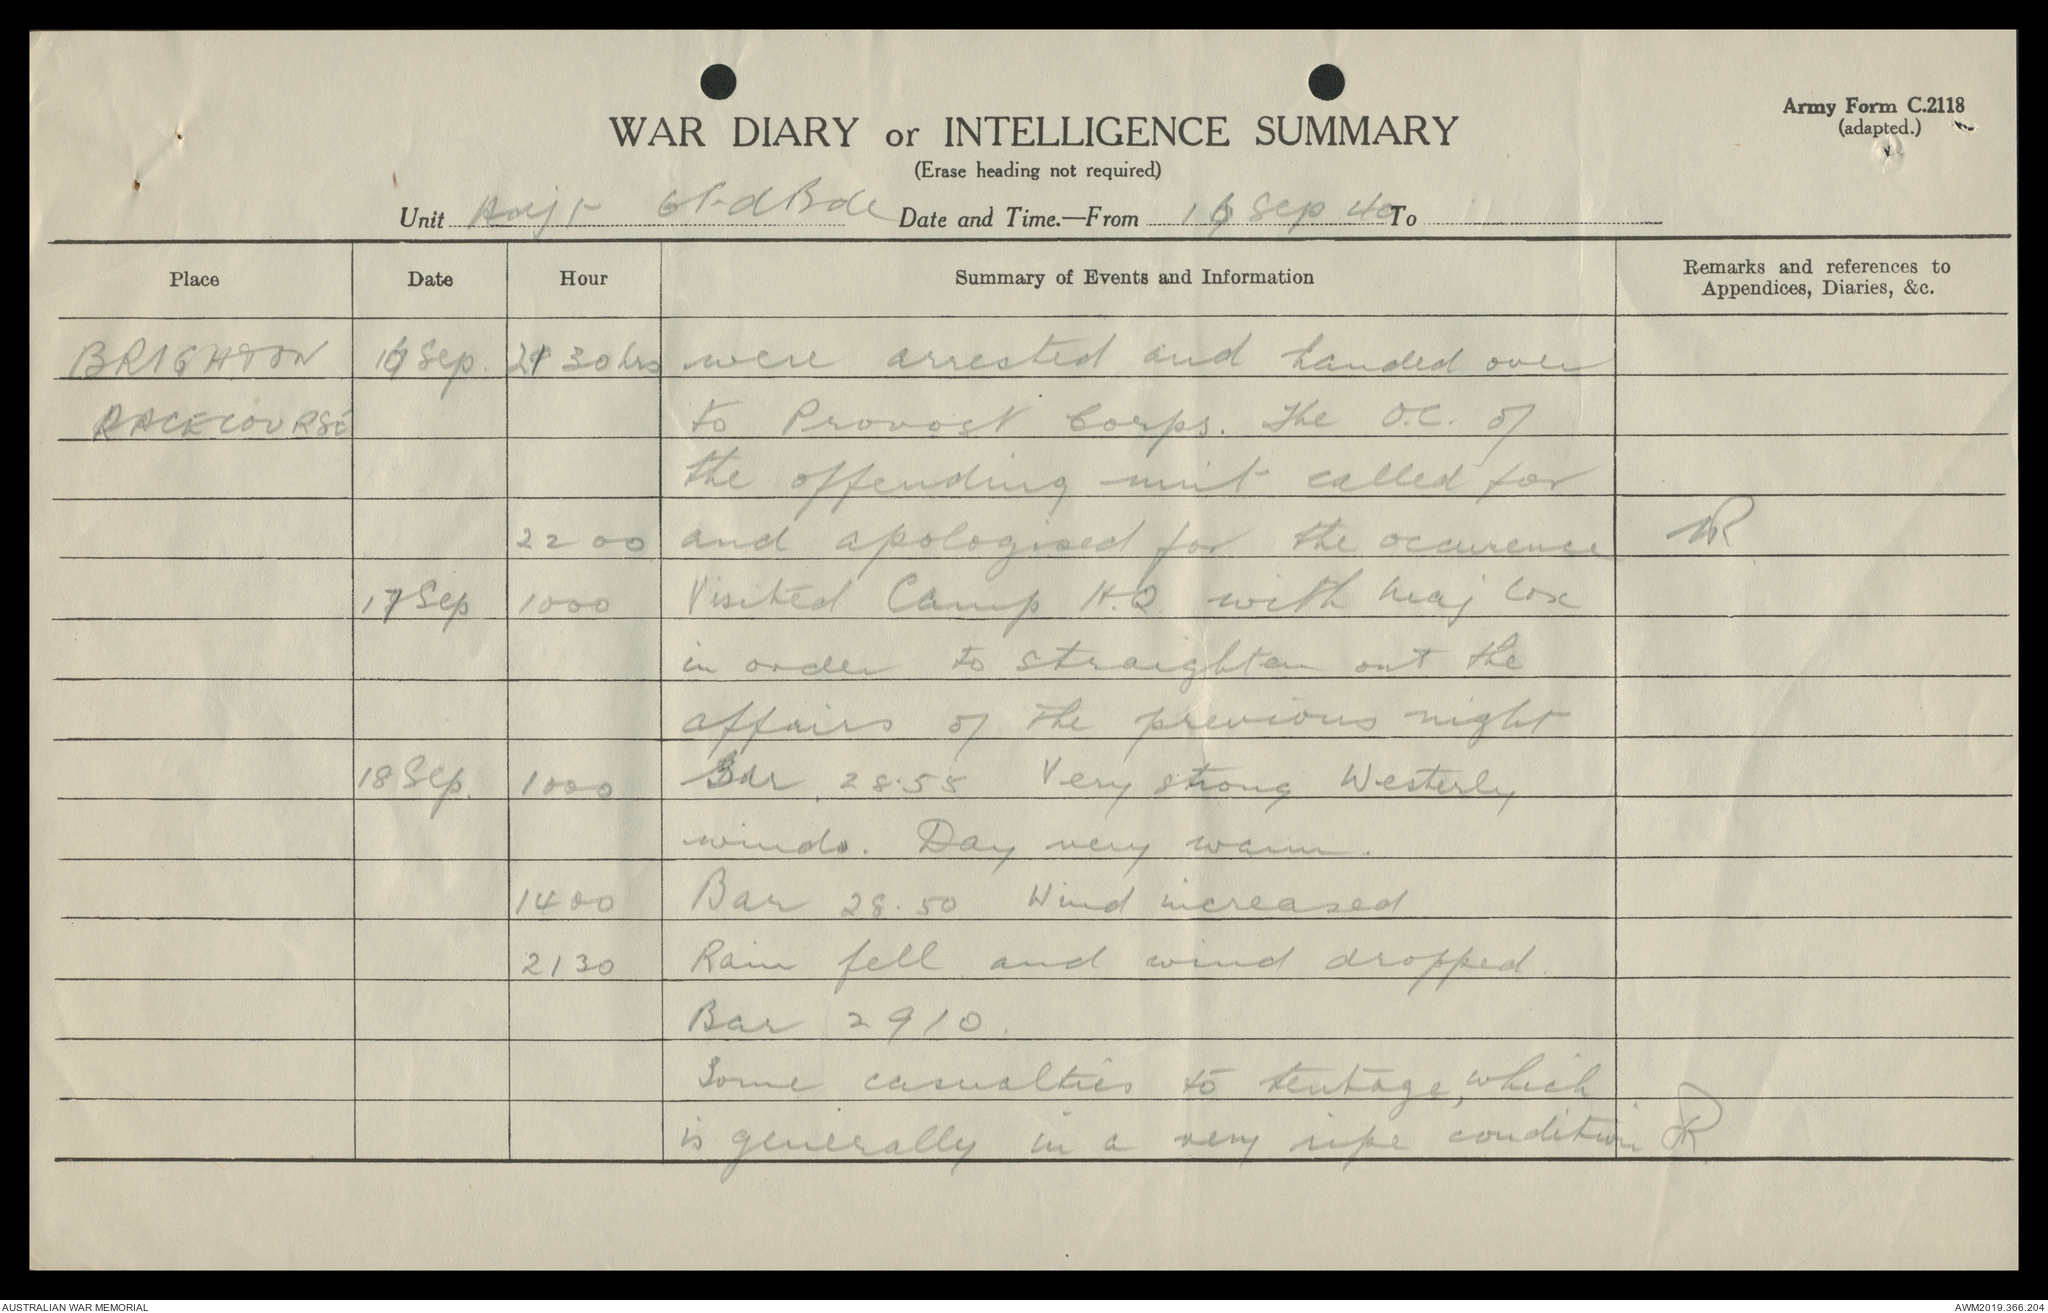 Army Form C.2118
(adapted.)
WAR DIARY or INTELLIGENCE SUMMARY
(Erase heading not required)
Unit Adjt 6 Fd Bde Date and Time.—From 16 Sep 40 To
Place Date Hour Summary of Events and Information Remarks and references to Appendices, Diaries, &c.
BRIGHTON 16 Sep. 21 30 hrs were arrested and handed over
RACECOURSE to Provost Corps. The O.C. of
the offending unit called for
2200 and apologised for the occurence
17 Sep 1000 Visited Camp H.Q with Maj Cox
in order to straighten out the
affairs of the previous night
18 Sep. 1000 Bar 28.55 Very strong Westerly
winds. Day very warm.
1400 Bar 28.50 Wind increased
2130 Rain fell and wind dropped.
Bar 2910.
Some casualties to tentage, which
is generally in a very ripe condition
AUSTRALIAN WAR MEMORIAL AWM2019.366.204